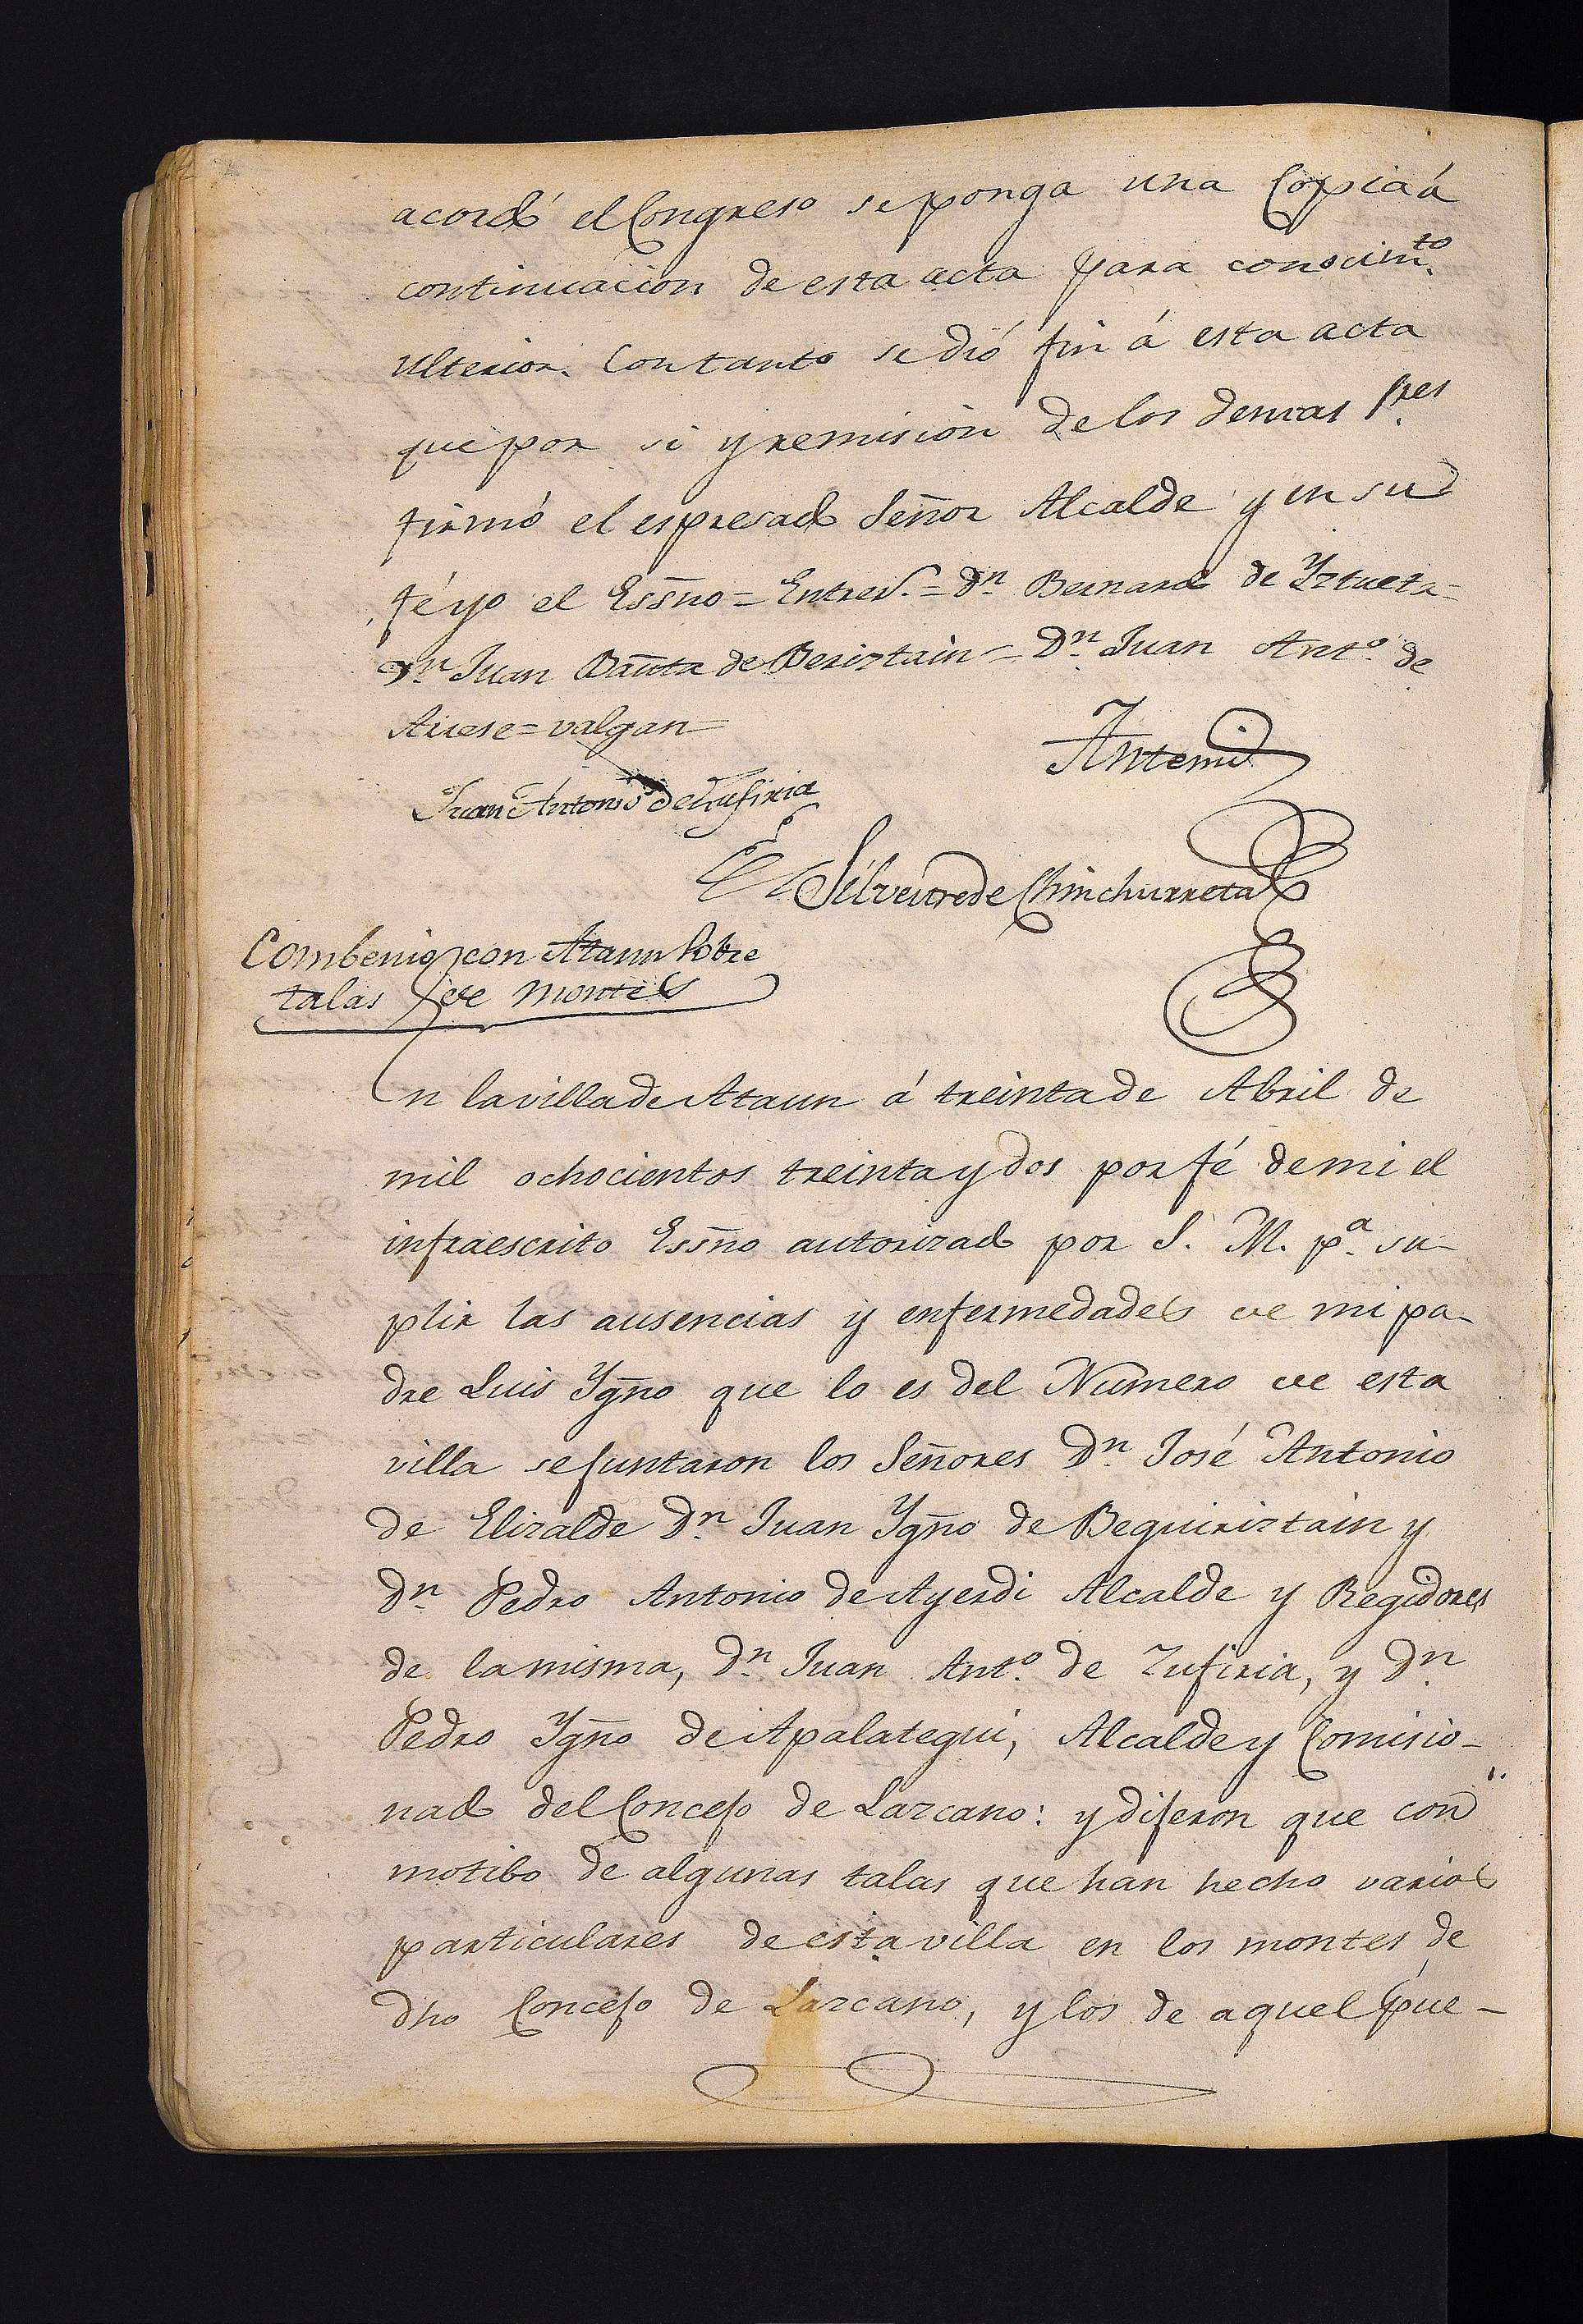 acordó el Congreso se ponga una Copia á
continuacion de esta acta para conocim.to
ulterior. Con tanto se dió fin á esta acta
que por si y remision de los demas S.res
firmó el espresado Señor Alcalde y en su
fé yo el Essno = Entrer.s = Dn. Bernardo de Yztueta =
Dn. Juan Bauta de Beriztain = Dn. Juan Anto. de
Auese = valgan =
Antemi
Juan Antonio de Zufiria
Silvestre de Chinchurreta
Combenio con Ataun Sobre
talas de montes
En la villa de Ataun á treinta de Abril de
mil ochocientos treinta y dos por fé de mi el
infraescrito Essno autorizado por S. M. p.a su-
plir las ausencias y enfermedades de mi pa-
dre Luis Ygno que lo es del Numero de esta
villa se juntaron los Señores Dn. José Antonio
de Elizalde Dn. Juan Ygno de Beguiriztain y
Dn. Pedro Antonio de Ayerdi Alcalde y Regidores
de la misma, Dn. Juan Anto. de Zufiria, y Dn.
Pedro Ygno de Apalategui, Alcalde y Comisio-
nado del Concejo de Lazcano: y dijeron que con
motibo de algunas talas que han hecho varios
particulares de esta villa en los montes de
dho Concejo de Lazcano, y los de aquel pue-